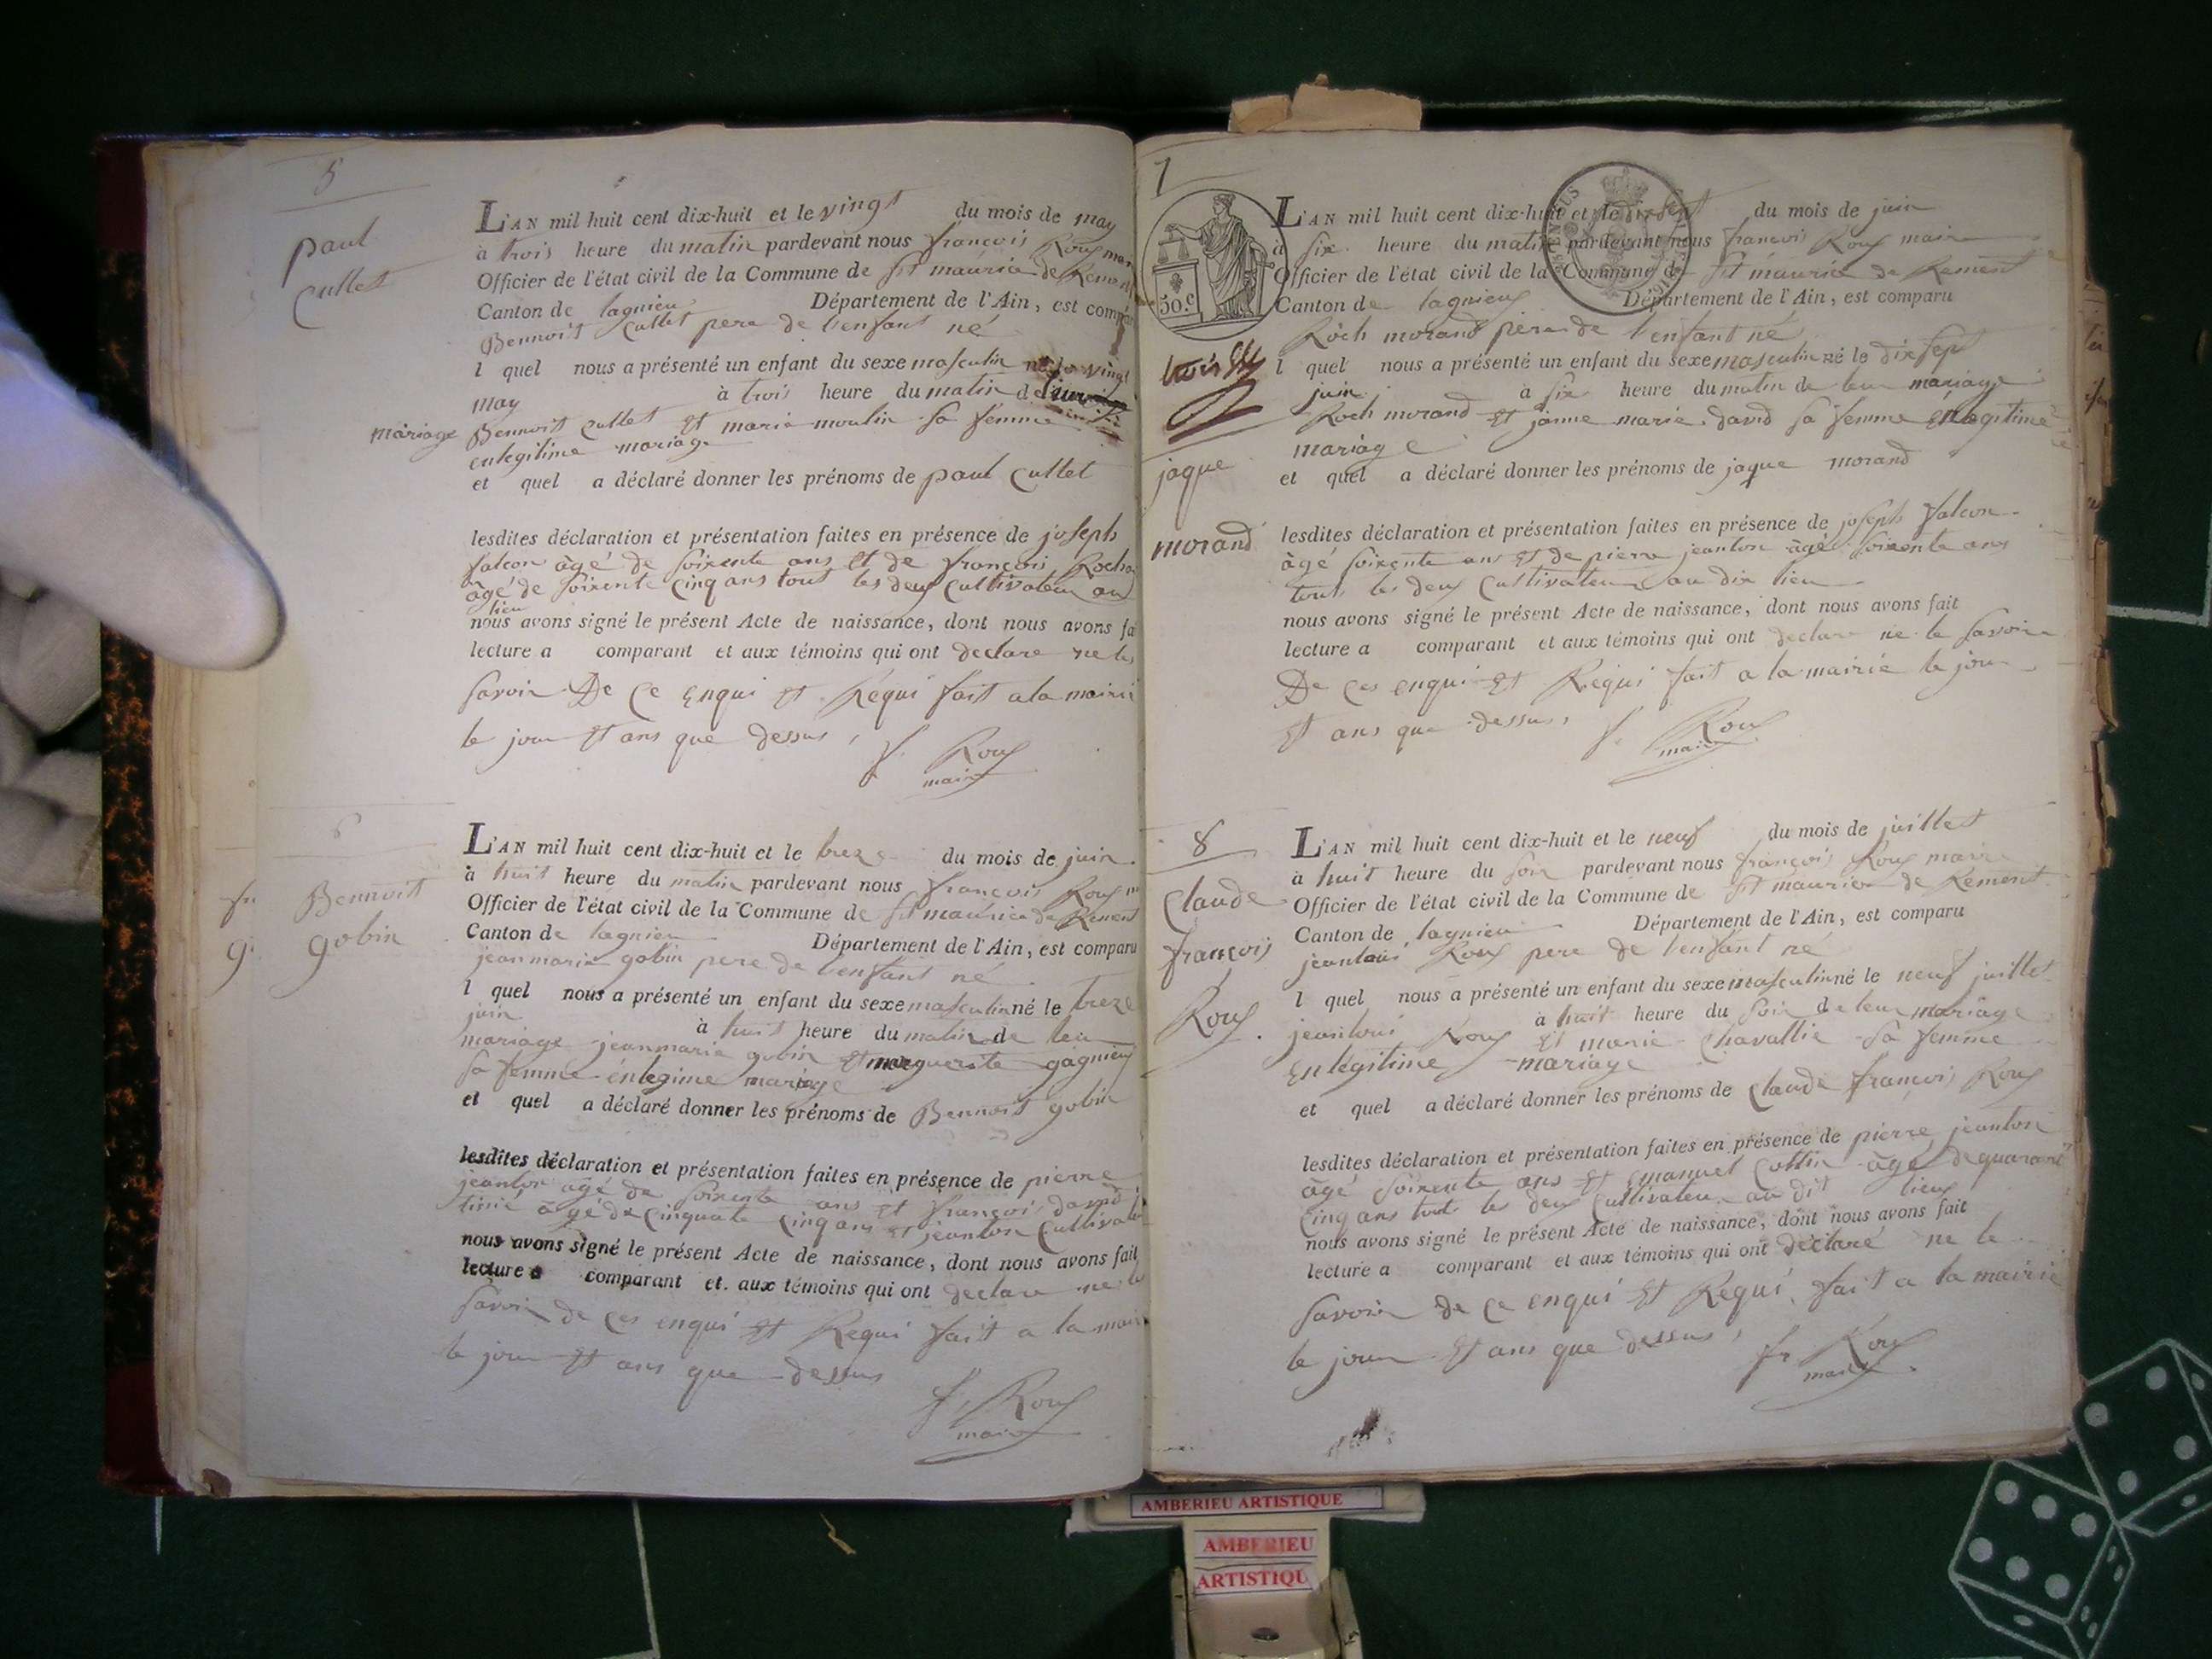 5
paul
Cullet
L'AN mil huit cent dix-huit et le vingt du mois de may
à trois heure du matin pardevant nous françois Roux
Officier de l'état civil de la Commune de St maurice de Remens
Canton de lagnieu Département de l'Ain, est
Bennoit Cullet pere de l'enfant né
l quel nous a présenté un enfant du sexe masculin né le vingt
may à trois heure du matin de leur
mariage Bennoit Cullet Et marie moulin sa femme
enlegitime mariage
et quel a déclaré donner les prénoms de paul Cullet
lesdites déclaration et présentation faites en présence de joseph
falcon âgé de soixente ans Et de françois
âgé de soixente cinq ans tout les deux Cultivateur au
lieu
nous avons signé le présent Acte de naissance, dont nous avons
lecture a comparant et aux témoins qui ont declare ne le
savoir De Ce enqui Et Requi fait a la mairie
le jour Et ans que dessus, f. Roux
maire
6
Bennoit
gobin
L'AN mil huit cent dix-huit et le treze du mois de juin
à huit heure du matin pardevant nous françois Roux
Officier de l'état civil de la Commune de St maurice de Remens
Canton de lagnieu Département de l'Ain, est comparu
jeanmarie gobin pere de l'enfant né
l quel nous a présenté un enfant du sexe masculin né le treze
juin à huit heure du matin de leur
mariage jeanmarie gobin Et marguerite gagnieux
sa femme enlegime mariage
et quel a déclaré donner les prénoms de Bennoit gobin
lesdites déclaration et présentation faites en présence de pierre
jeanton âgé de soixente ans et françois david
âgé de cinquante cinq ans et jeanton Cultivateur
nous avons signé le présent Acte de naissance, dont nous avons fait
lecture a comparant et aux témoins qui ont declare ne le
savoir de Ces enqui Et Requi fait a la mairie
le jour Et ans que dessus
f, Roux
maire
7
50.c
jaque
morand
L'AN mil huit cent dix-huit et le dix sept du mois de juin
à six heure du matin pardevant nous francois Roux maire
Officier de l'état civil de la Commune de St maurice de Remens
Canton de lagnieux Département de l'Ain, est comparu
Roch morand pere de l'enfant né
l quel nous a présenté un enfant du sexe masculin né le dix sept
juin à six heure du matin de leur mariage
Roch morand Et janne marie david sa femme enlegitime
mariage
et quel a déclaré donner les prénoms de jaque morand
lesdites déclaration et présentation faites en présence de joseph falcon
âgé soixente ans Et de pierre jeanton âgé soixente ans
tout les deux Cultivateur au dix lieu
nous avons signé le présent Acte de naissance, dont nous avons fait
lecture a comparant et aux témoins qui ont declare ne le savoir
De Ces enqui Et Requi fait a la mairie le jour
Et ans que dessus, f. Roux
maire
8
Claude
françois
Roux.
L'AN mil huit cent dix-huit et le neuf du mois de juillet
à huit heure du soir pardevant nous françois Roux maire
Officier de l'état civil de la Commune de St maurice de Remens
Canton de lagnieu Département de l'Ain, est comparu
jeanloui Roux pere de l'enfant né
l quel nous a présenté un enfant du sexe masculin né le neuf juillet
à huit heure du soir de leur mariage
jeanloui Roux Et marie Chavallie sa femme
Enlégitime mariage
et quel a déclaré donner les prénoms de Claude françois Roux
lesdites déclaration et présentation faites en présence de pierre jeanton
âgé soixente ans Et Emanuel Cottin âgé de quarante
Cinq ans tout les deux Cultivateur au dit lieux
nous avons signé le présent Acte de naissance, dont nous avons fait
lecture a comparant et aux témoins qui ont déclaré ne le
savoir de Ce enqui Et Requi, fait a la mairie
le jour Et ans que dessus, fr Roux
maire
AMBERIEU ARTISTIQUE
AMBERIEU
ARTISTIQU